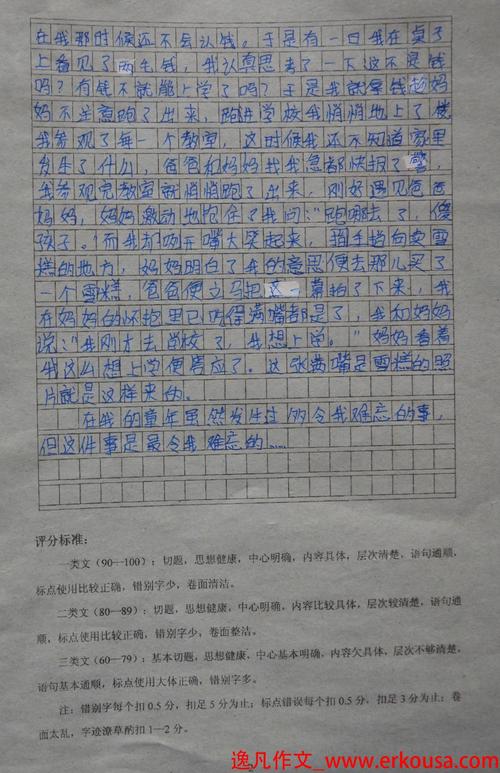 在我那时候还不会认钱。于是有一日我在桌子
上看见了两毛钱，我认真思考了一下这不是钱
吗？有钱不就能上学了吗？于是我就拿钱趁妈
妈不注意跑了出来，跑进学校我悄悄地上了楼
我参观了每一个教室，这时候我还不知道家里
发生了什么，爸爸和妈妈找我急都快报了警，
我参观完教室就悄悄跑了出来，刚好遇见爸爸
妈妈，妈妈激动地抱住了我问：“跑哪去了，傻
孩子。”而我却咧开嘴大笑起来，指手指向卖雪
糕的地方，妈妈明白了我的意思便去那儿买了
一个雪糕，爸爸便立马把这一幕拍了下来，我
在妈妈的怀抱里已吃得满嘴都是了，我和妈妈
说：“我刚才去学校了，我想上学。”妈妈看着
我这么想上学便答应了。这张满嘴是雪糕的照
片就是这样来的。
在我的童年虽然发生过多令我难忘的事，
但这件事是最令我难忘的……
评分标准：
一类文（90—100）：切题，思想健康，中心明确，内容具体，层次清楚，语句通顺，
标点使用比较正确，错别字少，卷面清洁。
二类文（80—89）：切题，思想健康，中心明确，内容比较具体，层次较清楚，语句通
顺，标点使用比较正确，错别字少，卷面整洁。
三类文（60—79）：基本切题，思想健康，中心基本明确，内容欠具体，层次不够清楚，
语句基本通顺，标点使用大体正确，错别字多。
注：错别字每个扣 0.5 分，扣足 5 分为止；标点错误每个扣 0.5 分，扣足 3 分为止；卷
面太乱，字迹潦草酌扣 1—2 分。
逸凡作文_www.erkousa.com